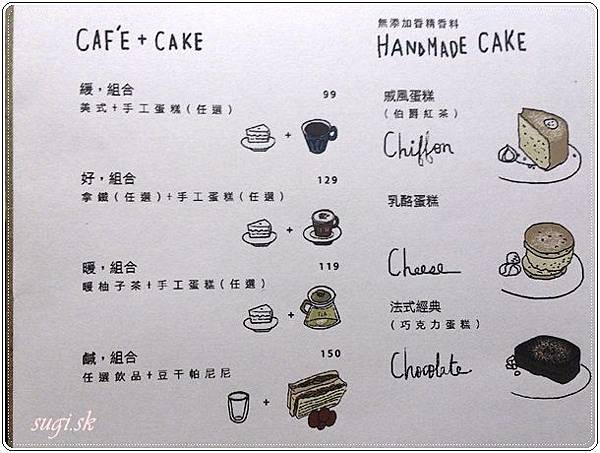 CAF'E + CAKE
緩，組合 99
美式+手工蛋糕(任選)
+
好，組合 129
拿鐵(任選)+手工蛋糕(任選)
+
暖，組合 119
暖柚子茶+手工蛋糕(任選)
+
TEA
鹹，組合 150
任選飲品+豆干帕尼尼
+
無添加香精香料
HANDMADE CAKE
戚風蛋糕
(伯爵紅茶)
Chiffon
乳酪蛋糕
Cheese
法式經典
(巧克力蛋糕)
Chocolate
sugi.sk